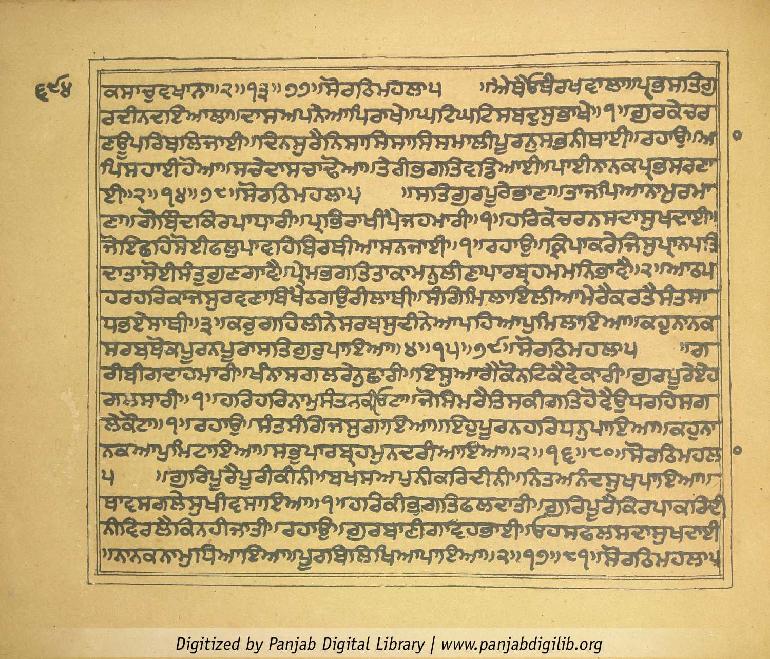 ੬੯੪
ਕਸਾਚੁਵਖਾਨਾ॥੨॥੧੩॥੭੭॥ਸੋਰਠਿਮਹਲਾ੫ ॥ਐਥੈਓਥੈਰਖਵਾਲਾ॥ਪ੍ਰਭਸਤਿਗੁ
ਰਦੀਨਦਇਆਲਾ॥ਦਾਸਅਪਨੇਆਪਿਰਾਖੇ॥ਘਟਿਘਟਿਸਬਦੁਸੁਭਾਖੇ॥੧॥ਗੁਰਕੇਚਰ
ਣਊਪਰਿਬਲਿਜਾਈ॥ਦਿਨਸੁਰੈਨਿਸਾਸਿਸਾਸਿਸਮਾਲੀਪੂਰਨੁਸਭਨੀਥਾਈ॥ਰਹਾਉ॥ਆ
ਪਿਸਹਾਈਹੋਆ॥ਸਚੇਦਾਸਚਾਢੋਆ॥ਤੇਰੀਭਗਤਿਵਡਿਆਈ॥ਪਾਈਨਾਨਕਪ੍ਰਭਸਰਣਾ
ਈ॥੨॥੧੪॥੭੮॥ਸੋਰਠਿਮਹਲਾ੫ ॥ਸਤਿਗੁਰਪੂਰੇਭਾਣਾ॥ਤਾਜਪਿਆਨਾਮੁਰਮਾ
ਣਾ॥ਗੋਬਿੰਦਕਿਰਪਾਧਾਰੀ॥ਪ੍ਰਭਿਰਾਖੀਪੈਜਹਮਾਰੀ॥੧॥ਹਰਿਕੇਚਰਨਸਦਾਸੁਖਦਾਈ॥
ਜੋਇਛਹਿਸੋਈਫਲੁਪਾਵਹਿਬਿਰਥੀਆਸਨਜਾਈ॥੧॥ਰਹਾਉ॥ਕ੍ਰਿਪਾਕਰੇਜਿਸੁਪ੍ਰਾਨਪਤਿ
ਦਾਤਾਸੋਈਸੰਤੁਗੁਣਗਾਵੈ॥ਪ੍ਰੇਮਭਗਤਿਤਾਕਾਮਨੁਲੀਣਾਪਾਰਬ੍ਰਹਮਮਨਿਭਾਵੈ॥੨॥ਆਠਪ
ਹਰਹਰਿਕਾਜਸੁਰਵਣਾਬਿਖੈਠਗਉਰੀਲਾਥੀ॥ਸੰਗਿਮਿਲਾਇਲੀਆਮੇਰੈਕਰਤੈਸੰਤਸਾ
ਧਭਏਸਾਥੀ॥੩॥ਕਰੁਗਹਿਲੀਨੇਸਰਬਸੁਦੀਨੇਆਪਹਿਆਪੁਮਿਲਾਇਆ॥ਕਹੁਨਾਨਕ
ਸਰਬਥੋਕਪੂਰਨਪੂਰਾਸਤਿਗੁਰੁਪਾਇਆ॥੪॥੧੫॥੭੯॥ਸੋਰਠਿਮਹਲਾ੫ ॥ਗ
ਰੀਬੀਗਦਾਹਮਾਰੀ॥ਖੰਨਾਸਗਲਰੇਨੁਛਾਰੀ॥ਇਸੁਆਗੈਕੋਨਟਿਕੈਵੇਕਾਰੀ॥ਗੁਰਪੂਰੇਏਹ
ਗਲਸਾਰੀ॥੧॥ਹਰਿਹਰਿਨਾਮੁਸੰਤਨਕੀਓਟਾ॥ਜੋਸਿਮਰੈਤਿਸਕੀਗਤਿਹੋਵੈਉਧਰਹਿਸਗ
ਲੇਕੋਟਾ॥੧॥ਰਹਾਉ॥ਸੰਤਸੰਗਿਜਸੁਗਾਇਆ॥ਇਹੁਪੂਰਨਹਰਿਧਨੁਪਾਇਆ॥ਕਹੁਨਾ
ਨਕਆਪੁਮਿਟਾਇਆ॥ਸਭੁਪਾਰਬ੍ਰਹਮੁਨਦਰੀਆਇਆ॥੨॥੧੬॥੮੦॥ਸੋਰਠਿਮਹਲਾ
੫ ॥ਗੁਰਿਪੂਰੈਪੂਰੀਕੀਨੀ॥ਬਖਸਅਪੁਨੀਕਰਿਦੀਨੀ॥ਨਿਤਅਨੰਦਸੁਖਪਾਇਆ॥
ਥਾਵਸਗਲੇਸੁਖੀਵਸਾਇਆ॥੧॥ਹਰਿਕੀਭਗਤਿਫਲਦਾਤੀ॥ਗੁਰਿਪੂਰੈਕਿਰਪਾਕਰਿਦੀ
ਨੀਵਿਰਲੈਕਿਨਹੀਜਾਤੀ॥ਰਹਾਉ॥ਗੁਰਬਾਣੀਗਾਵਹਭਾਈ॥ਓਹਸਫਲਸਦਾਸੁਖਦਾਈ
॥ਨਾਨਕਨਾਮੁਧਿਆਇਆ॥ਪੂਰਬਿਲਿਖਿਆਪਾਇਆ॥੨॥੧੭॥੮੧॥ਸੋਰਠਿਮਹਲਾ੫
Digitized by Panjab Digital Library | www.panjabdigilib.org